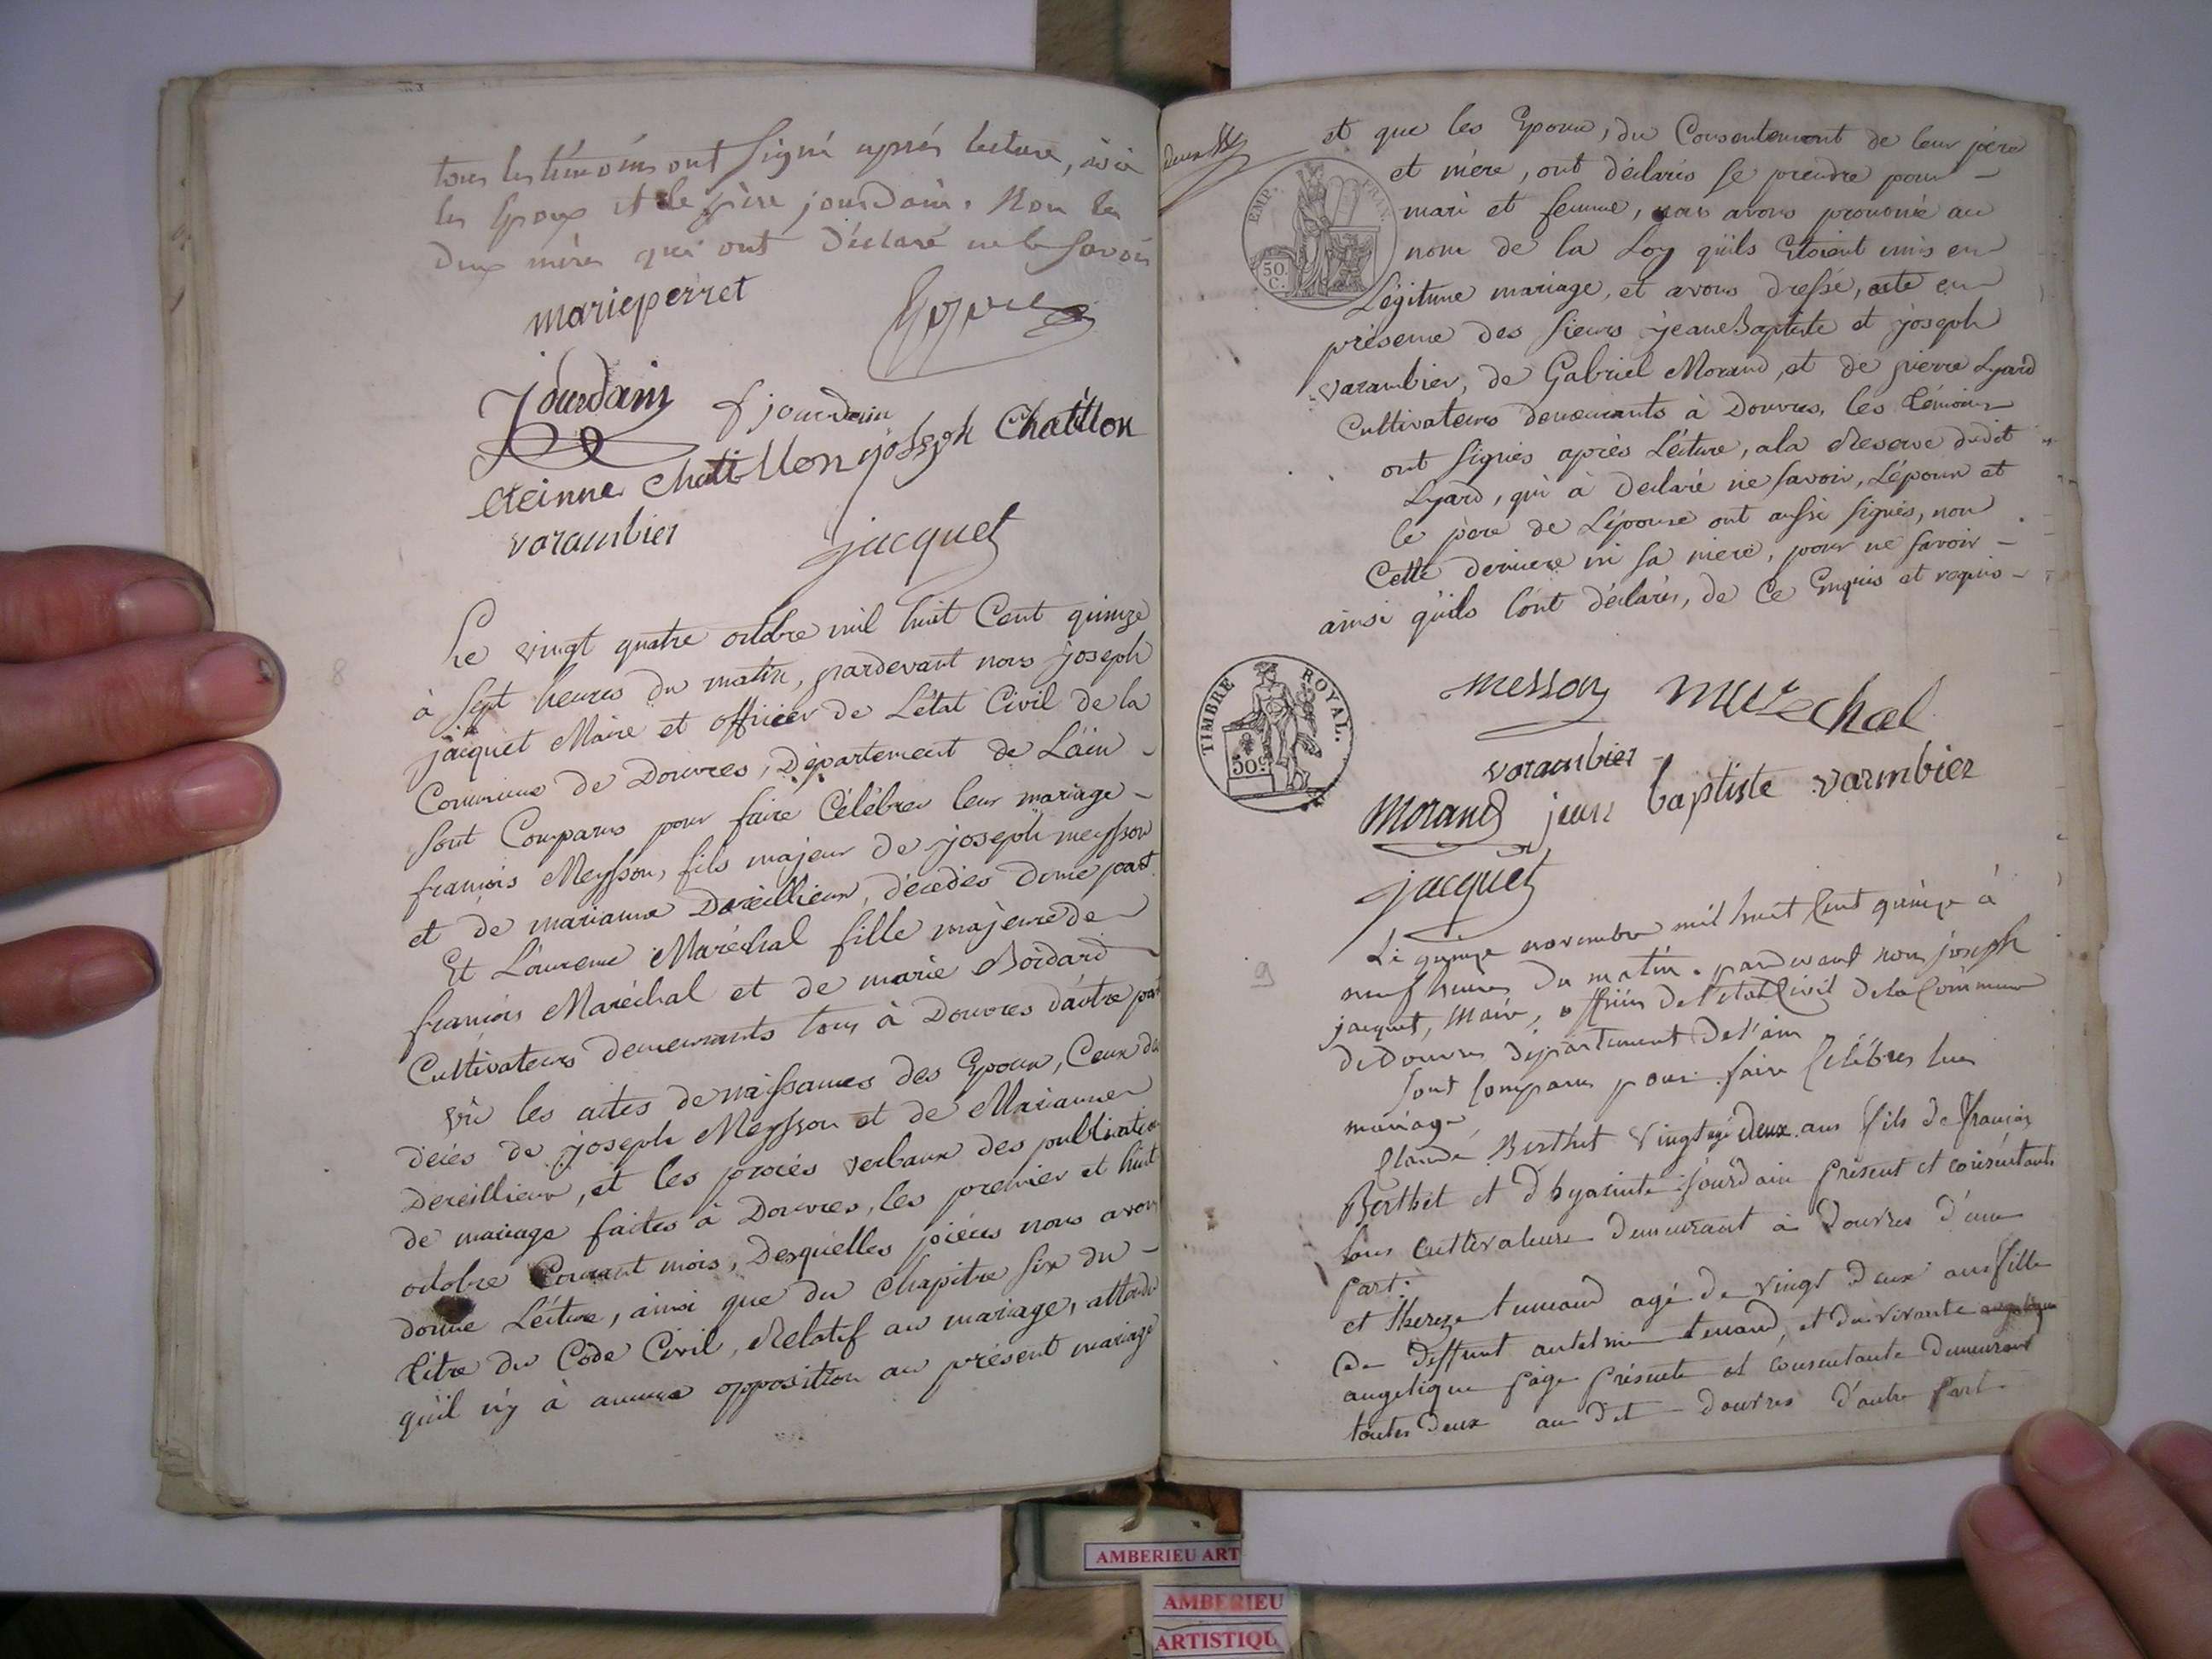 tous les témoins ont signé après lecture, ainsi
les Epoux et le père jourdain. Non les
deux mères qui ont déclaré ne le savoir
marieperret
Jourdain
f jourdain
eteinne chatillon joseph Chatillon
varambier
jacquet
8
Le vingt quatre octobre mil huit Cent quinze
à sept heures du matin, pardevant nous joseph
jacquet Maire et officier de L'état Civil de la
Commune de Douvres, Département de L'ain
sont Comparus pour faire Célébrer leur mariage
françois Meysson, fils majeur de joseph meysson
et de marianne Dereillieux, décédés d'une part
Et Laurence Maréchal fille majeure de
françois Maréchal et de marie Boidard
Cultivateurs demeurants tous à Douvres d'autre part
Vu les actes de naissances des Epoux, Ceux de
décès de joseph Meysson et de Marianne
Dereillieux, et les procès verbaux des publication
de mariage faites à Douvres, les premier et huit
octobre Courant mois, Desquelles pièces nous avons
donné Lécture, ainsi que du chapitre six du
titre du Code Civil, Relatif au mariage, attendu
qu'il n'y à aucune opposition au présent mariage
et que les Epoux, du Consentement de leur père
et mère, ont déclarés se prendre pour
mari et femme, nous avons prononcé au
nom de la Loy qu'ils étoient unis en
Légitime mariage, et avons dressé, acte en
présence des sieurs jean Baptiste et joseph
varambier, de Gabriel Morand, et de pierre Lyard
Cultivateurs demeurants à Douvres, les témoins
ont signés après Lécture, a la Reserve dudit
Lyard, qui à déclaré ne savoir, L'époux et
le père de L'épouse ont aussi signés, non
Cette derniere ni sa mere, pour ne savoir
ainsi qu'ils l'ont déclarés, de Ce Enquis et requis
EMP. FRAN.
50. C.
TIMBRE ROYAL.
50c.
messon marechal
varambier
Morand jean baptiste varmbier
jacquet
9
Le quinze novembre mil huit Cent quinze à
neuf heures du matin. pardevant nous joseph
jacquet, Maire, officier de l'état Civil de la Commune
de Douvres département de l'ain
sont Comparus pour faire Célébrer leur
mariage
Claude Berthet vingt deux ans fils de françois
Berthet et d'hyacinte jourdain présent et consentants
tous cultivateurs demeurant à Douvres d'une
part.
et thereze tenand agé de vingt deux ans fille
de deffunt antelme tenand, et de vivante
angelique page présente et consentante demeurant
toutes deux au dit douvres d'autre part
AMBERIEU ART
AMBERIEU
ARTISTIQU